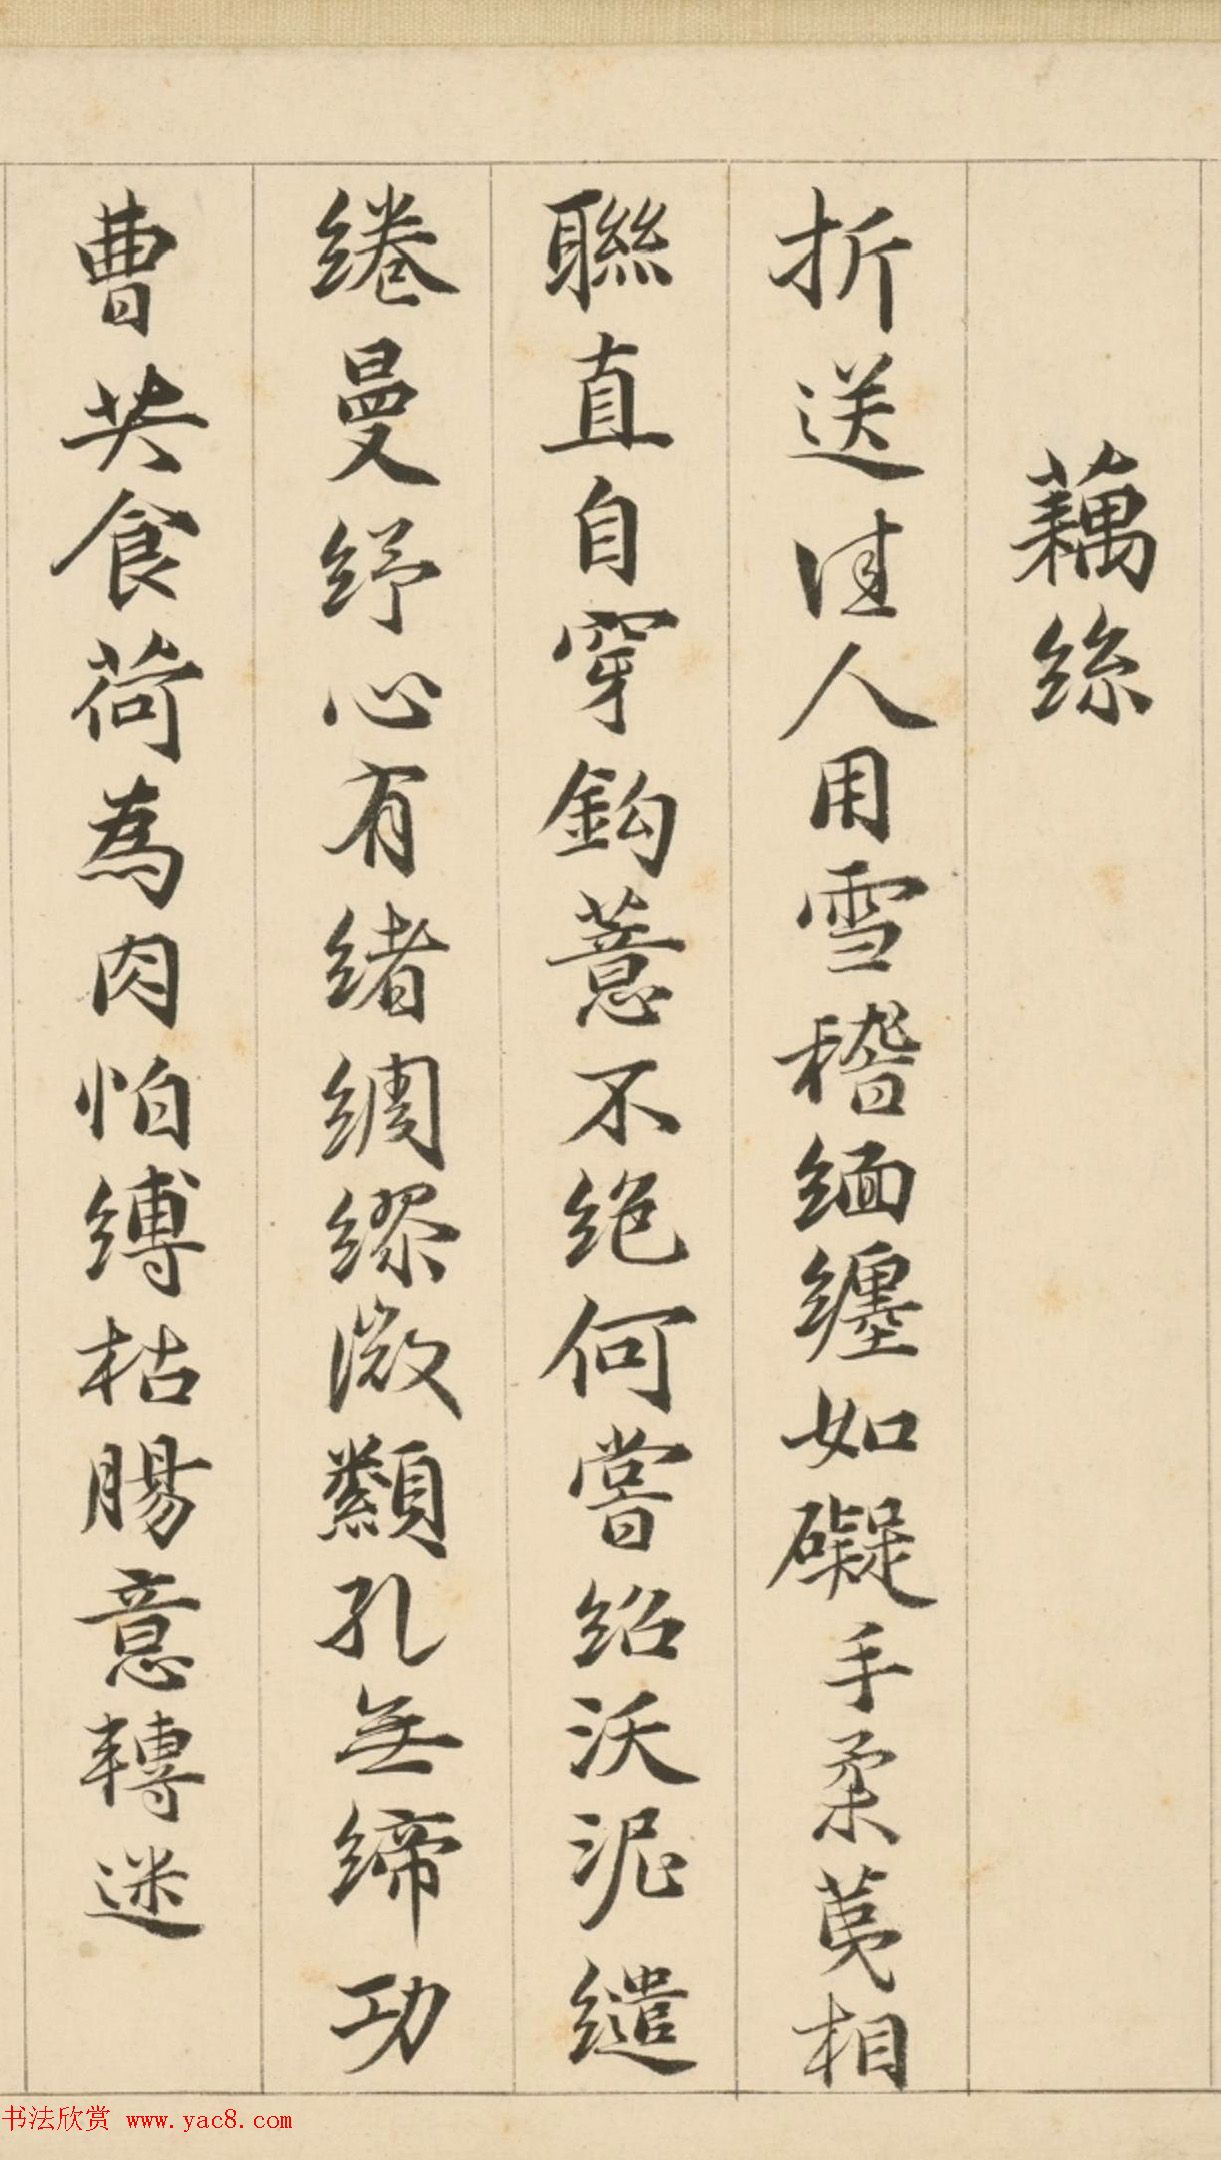 藕絲
折送佳人用雪嵇緬纏如礙手柔荑相
聯直自穿鈎薏不絕何嘗紹沃泥繾
綣曼紓心有緒綢繆微纇孔無締功
曹共食荷為肉怕縛枯腸意轉迷
书法欣赏 www.yac8.com